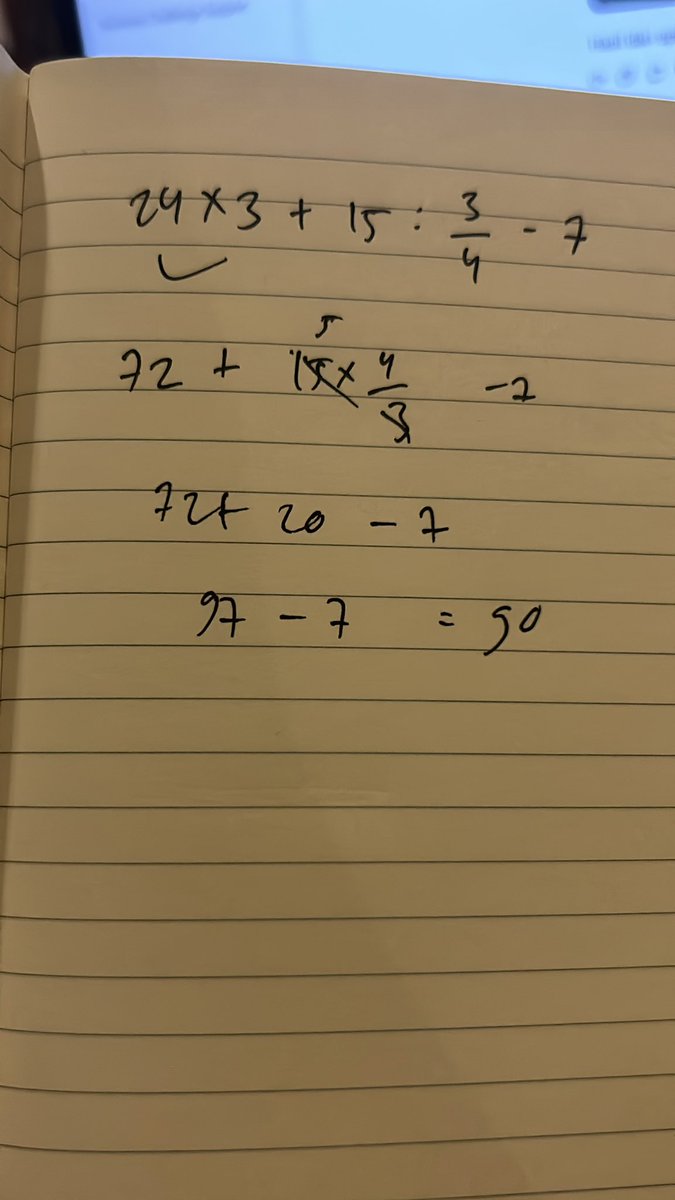 24 × 3 + 15 : 3/4 - 7
72 + 15 × 4/3 - 7
5
72 + 20 - 7
97 - 7 = 90